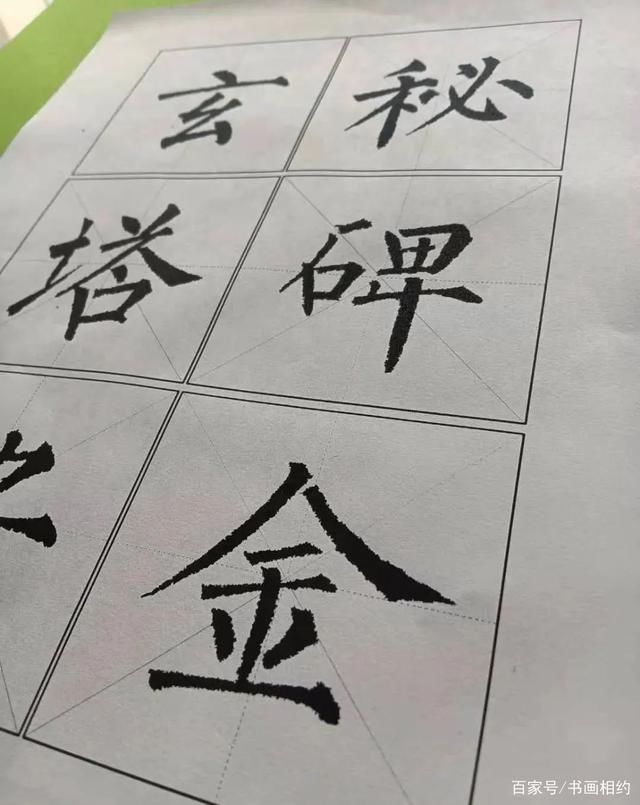 玄秘
塔碑
金
百家号/书画相约